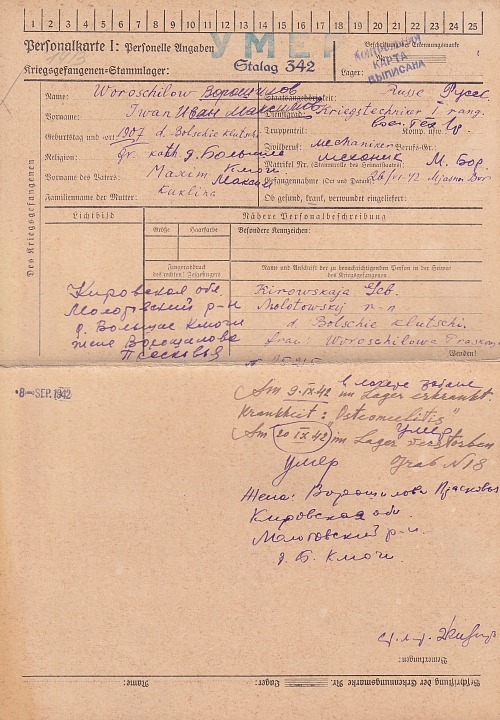 1 2 3 4 5 6 7 8 9 10 11 12 13 14 15 16 17 18 19 20 21 22 23 24 25
Personalkarte I: Personelle Angaben
УМЕР
Beschriftung der Erkennungsmarke
КАРТА
ВЫПИСАНА
Kriegsgefangenen-Stammlager: Stalag 342
Lager:
Des Kriegsgefangenen
Name: Woroschilow Ворошилов
Staatsangehörigkeit: Russe Русск.
Vorname: Iwan Иван Максимов
Dienstgrad: Kriegstechniker I rang.
Geburtstag und -ort: 1907 d. Bolschie klutschi
Truppenteil: Komp. usw.
Religion: Gr. kath. д. Большие Ключи
Zivilberuf: mechaniker Berufs-Gr.: механик
Vorname des Vaters: Maxim Максим
Matrikel Nr. (Stammrolle des Heimatstaates) М. Бор.
Gefangennahme (Ort und Datum) 26/VI-42 Mjasnoi Bor
Familienname der Mutter: Kuklina
Ob gesund, krank, verwundet eingeliefert:
Lichtbild
Nähere Personalbeschreibung
Größe
Haarfarbe
Besondere Kennzeichen:
Fingerabdruck
des rechten! Zeigefingers
Name und Anschrift der zu benachrichtigenden Person in der Heimat
des Kriegsgefangenen
Кировская обл.
Молотовский р-н
д. Большие Ключи
жене Ворошилова
Псасковья
Kirowskaja Geb.
Molotowskij r-n
d. Bolschie klutschi.
frau: Woroschilowa Praskow
Wenden!
-8- SEP. 1942
Am 9.IX.42 im Lager erkrankt
в лагере
Krankheit: "Osteomielitis"
Am 20 IX 42 im Lager verstorben
Умер
умер Grab N 18
Жена: Ворошилова Прасковья
Кировская обл.
Молотовский р-н.
д. Б. Ключи.
Bemerkungen:
Name:
Lager:
Beschriftung der Erkennungsmarke Nr.